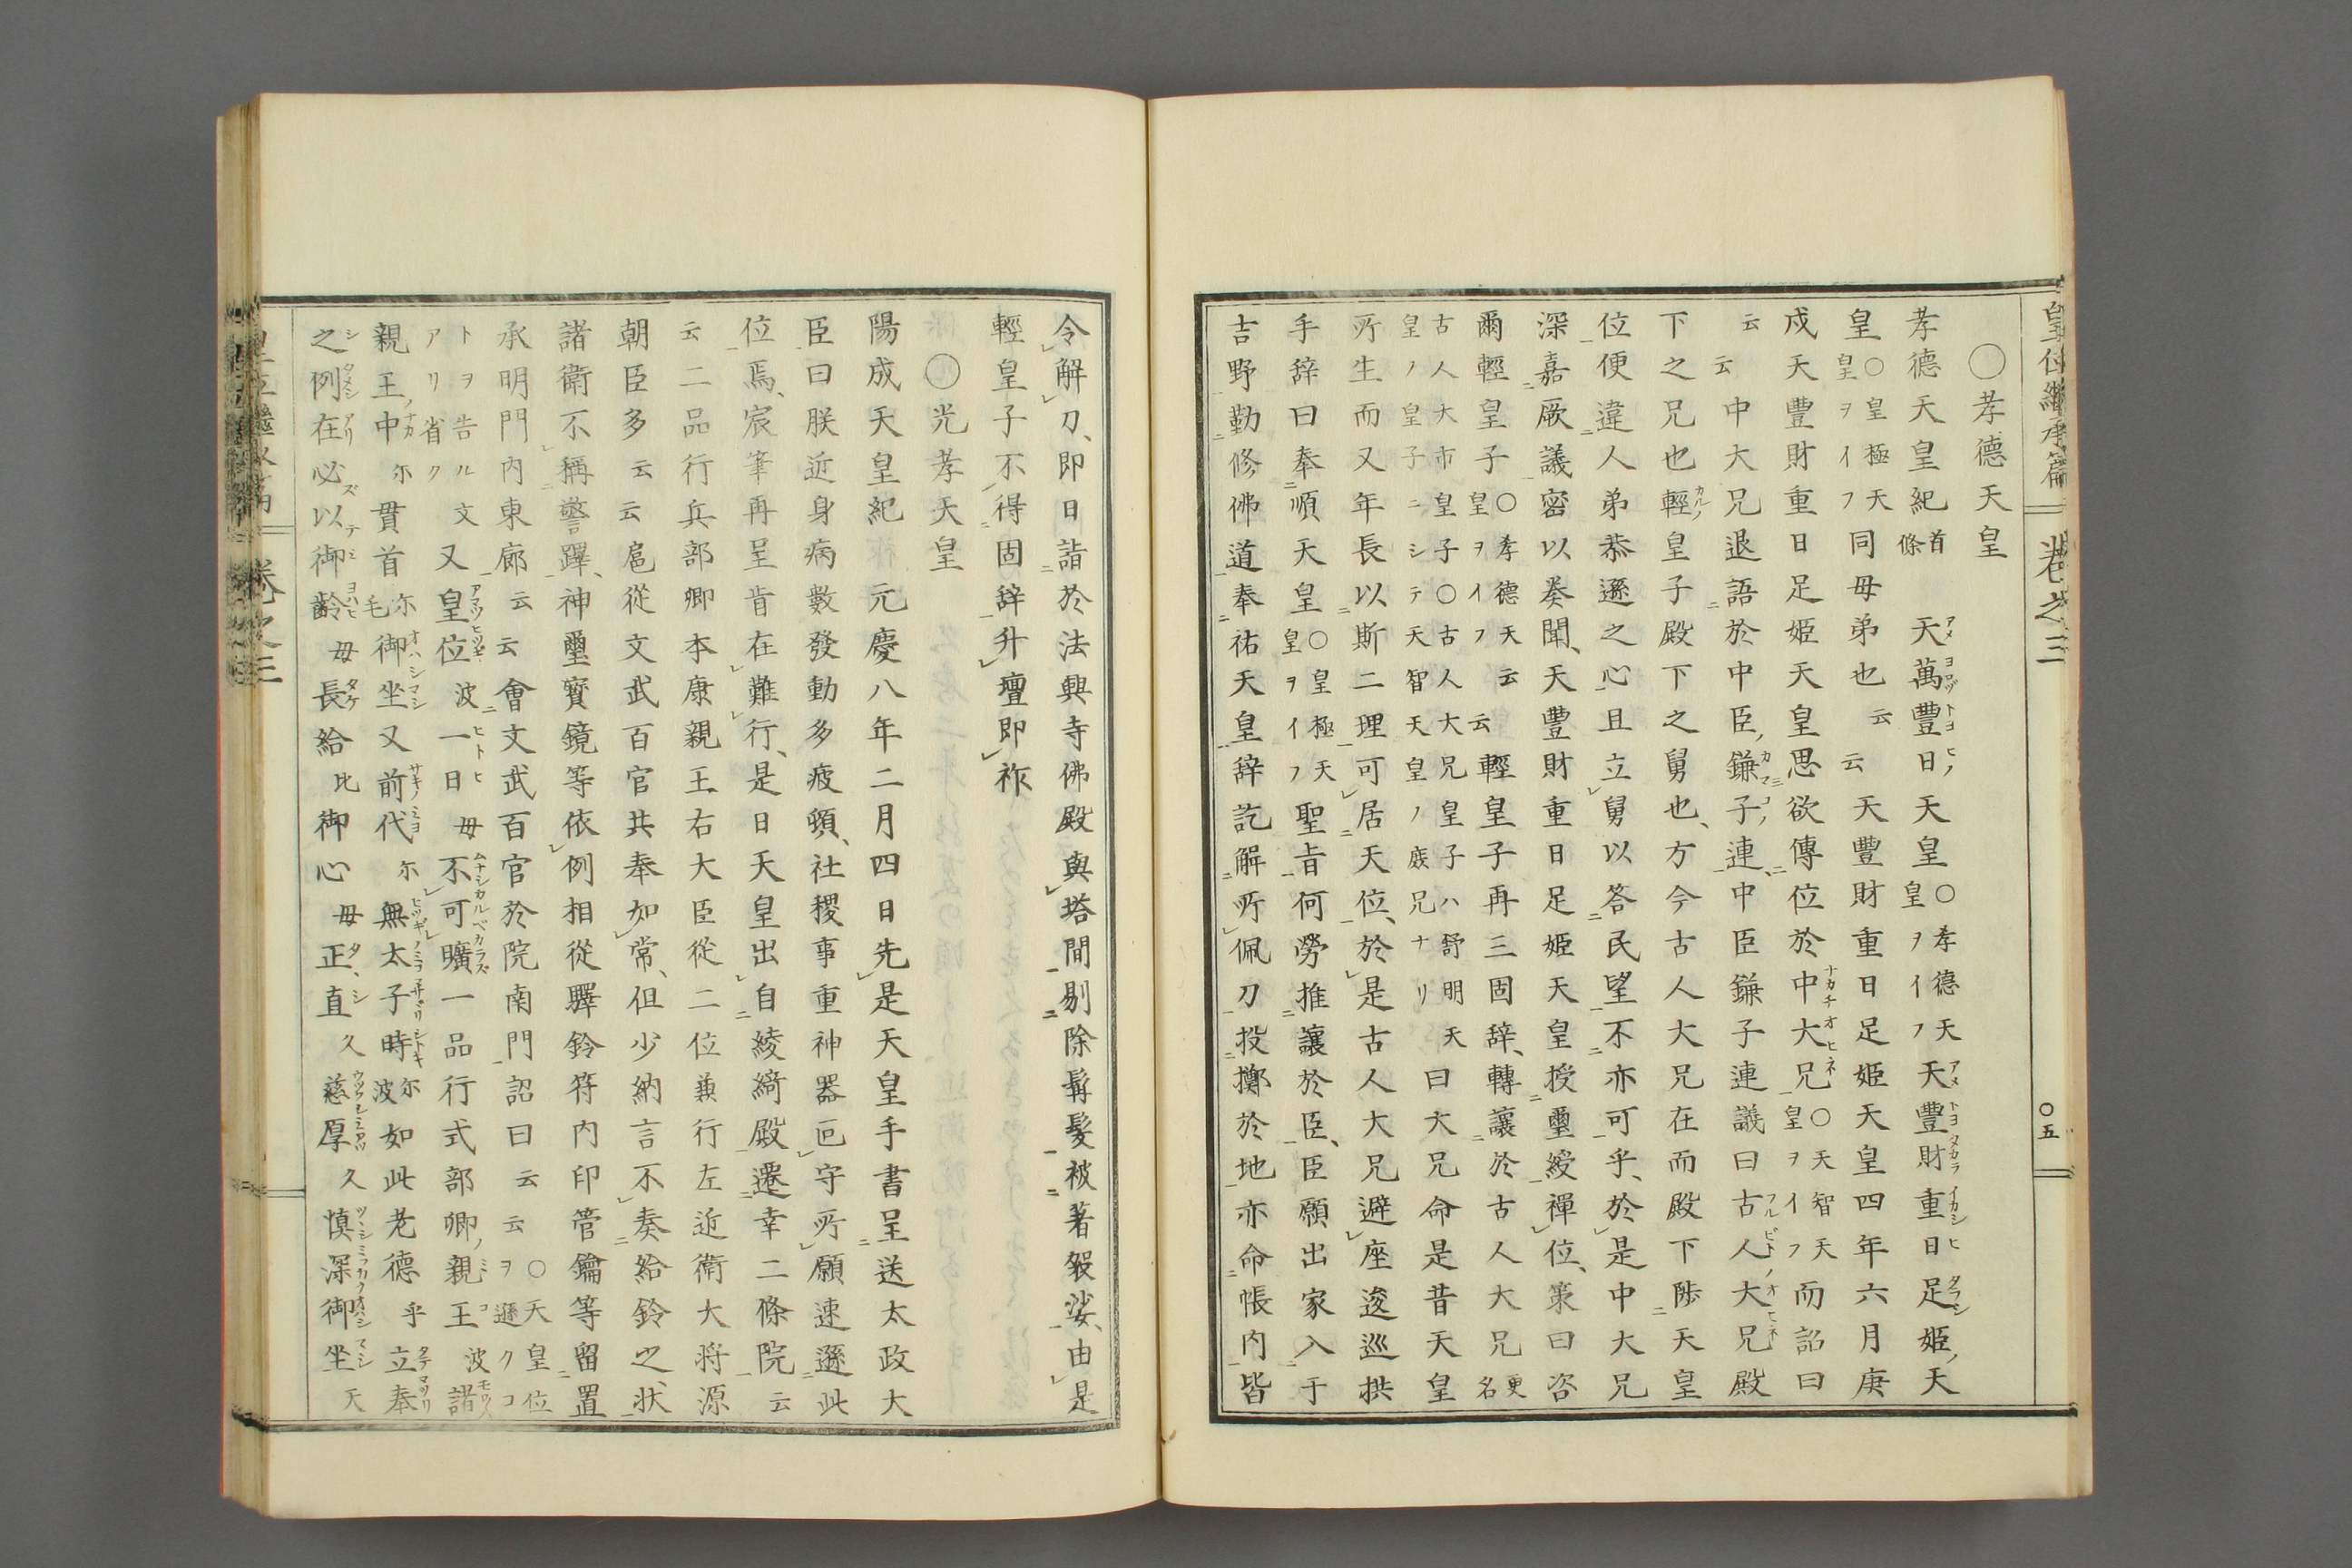 皇位繼承篇 卷之三 ○五
○孝德天皇
孝德天皇紀首條 天萬豐日天皇○孝德天皇ヲイフ天豐財重日足姬天
皇○皇極天皇ヲイフ同母弟也云云天豐財重日足姬天皇四年六月庚
戌天豐財重日足姬天皇思欲傳位於中大兄○天智天皇ヲイフ而詔曰
云云中大兄退語於中臣鎌子連中臣鎌子連議曰古人大兄殿
下之兄也輕皇子殿下之舅也、方今古人大兄在而殿下陟天皇
位便違人弟恭遜之心且立舅以答民望不亦可乎、於是中大兄
深嘉厥議密以奏聞、天豐財重日足姬天皇授璽綬禪位、策曰咨
爾輕皇子○孝德天皇ヲイフ云云輕皇子再三固辞、轉讓於古人大兄更名
古人大市皇子○古人大兄皇子ハ舒明天皇ノ皇子ニシテ天智天皇ノ庶兄ナリ曰大兄命是昔天皇
所生而又年長以斯二理可居天位、於是古人大兄避座逡巡拱
手辞曰奉順天皇○皇極天皇ヲイフ聖旨何勞推讓於臣、臣願出家入于
吉野勤修佛道奉祐天皇辞訖解所佩刀投擲於地亦命帳內皆
令解刀、即日詣於法興寺佛殿與塔間剔除髯髮被著袈裟、由是
輕皇子不得固辞升壇即祚
○光孝天皇
陽成天皇紀 元慶八年二月四日先是天皇手書呈送太政大
臣曰朕近身病數發動多疲頓、社稷事重神器叵守所願速遜此
位焉、宸筆再呈旨在難行、是日天皇出自綾綺殿遷幸二條院云
云二品行兵部卿本康親王右大臣從二位兼行左近衛大将源
朝臣多云云扈從文武百官共奉如常、但少納言不奏給鈴之狀
諸衛不稱警蹕、神璽寳鏡等依例相從驛鈴符內印管鑰等留置
承明門內東廊云云會文武百官於院南門詔曰云云○天皇位ヲ遜クコ
トヲ告ル文アリ省ク又皇位波一日毋不可曠一品行式部卿親王波諸
親王中尓貫首尓毛御坐又前代尓無太子時尓波如此老德乎立奉
之例在必以御齡毋長給比御心毋正直久慈厚久慎深御坐天